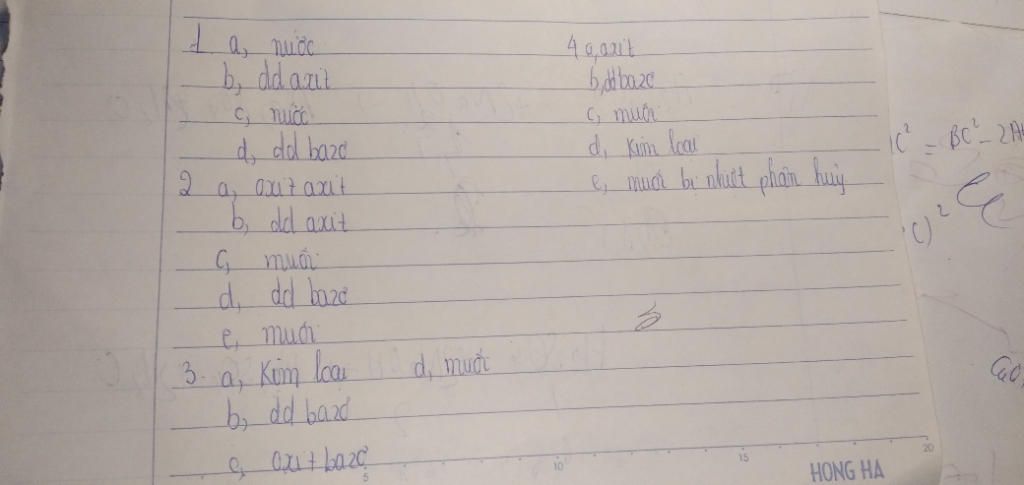 1 a, nước
b, dd axit
c, nước
d, dd bazơ
2 a, oxit axit
b, dd axit
c, muối
d, dd bazơ
e, muối
3. a, Kim loại d, muối
b, dd bazơ
c, oxit bazơ
4 a, axit
b, dd bazơ
c, muối
d, Kim loại
e, muối bị nhiệt phân hủy
C² = BC² - 2A
C)²
CaO
5 10 15 20
HONG HA